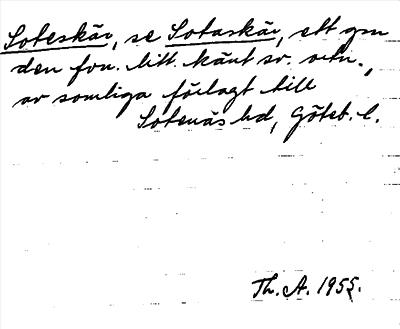 Soteskär, se Sotaskär, ett gm
den fvn. litt. känt sv. ortn.,
av somliga förlagt till
Sotenäs hd, Göteb. l.
Th. A. 1955.